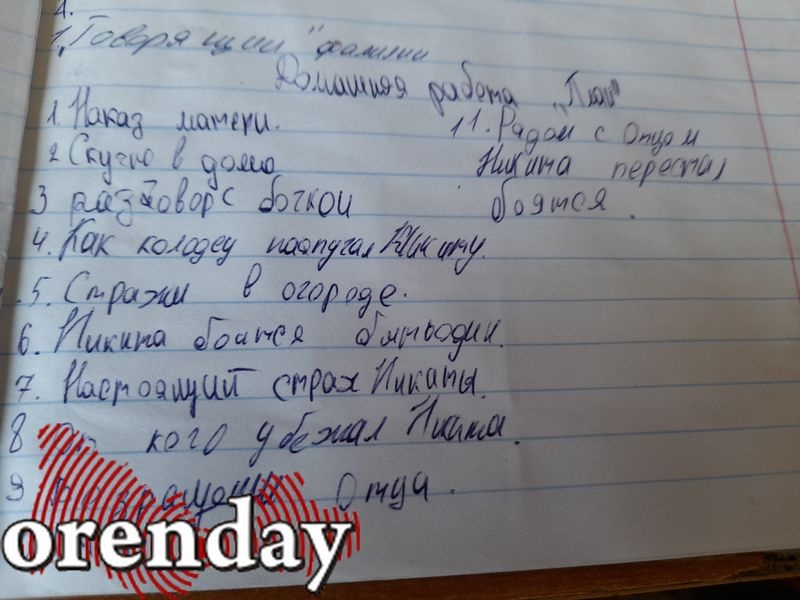 1.
1. "Говорящии" фамилии
Домашняя работа "План"
1. Наказ матери.
2 Скучно в доме
3 разговор с бочкои
4. Как колодец напугал Никиту.
5. Стражи в огороде.
6. Никита боится быть один.
7. Настоящий страх Никиты.
8 От кого убежал Никита.
9 Отца.
11. Рядом с Отцом
Никита перестал
боятся.
orenday